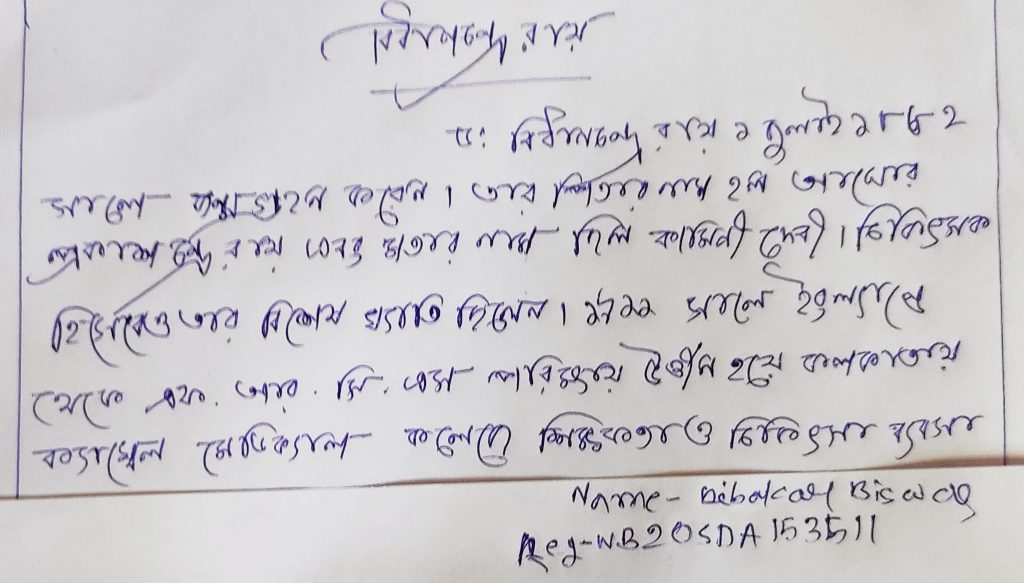 বিধানচন্দ্র রায়
ড: বিধানচন্দ্র রায় ১ জুলাই ১৮৮২
সালে জন্মগ্রহন করেন। তার পিতার নাম হল অঘোর
প্রকাশ চন্দ্র রায় এবং মাতার নাম ছিল কামিনী দেবী। চিকিৎসক
হিসেবেও তার বিশেষ খ্যাতি ছিলেন। ১৯১১ সালে ইংল্যান্ডে
থেকে এফ. আর. সি. এস পরিক্ষায় উত্তীর্ন হয়ে কলকাতায়
ক্যাম্বেল মেডিক্যাল কলেজে শিক্ষকতা ও চিকিৎসা ব্যবসা
Name- Dibakar Biswas
Reg-WB20SDA153511